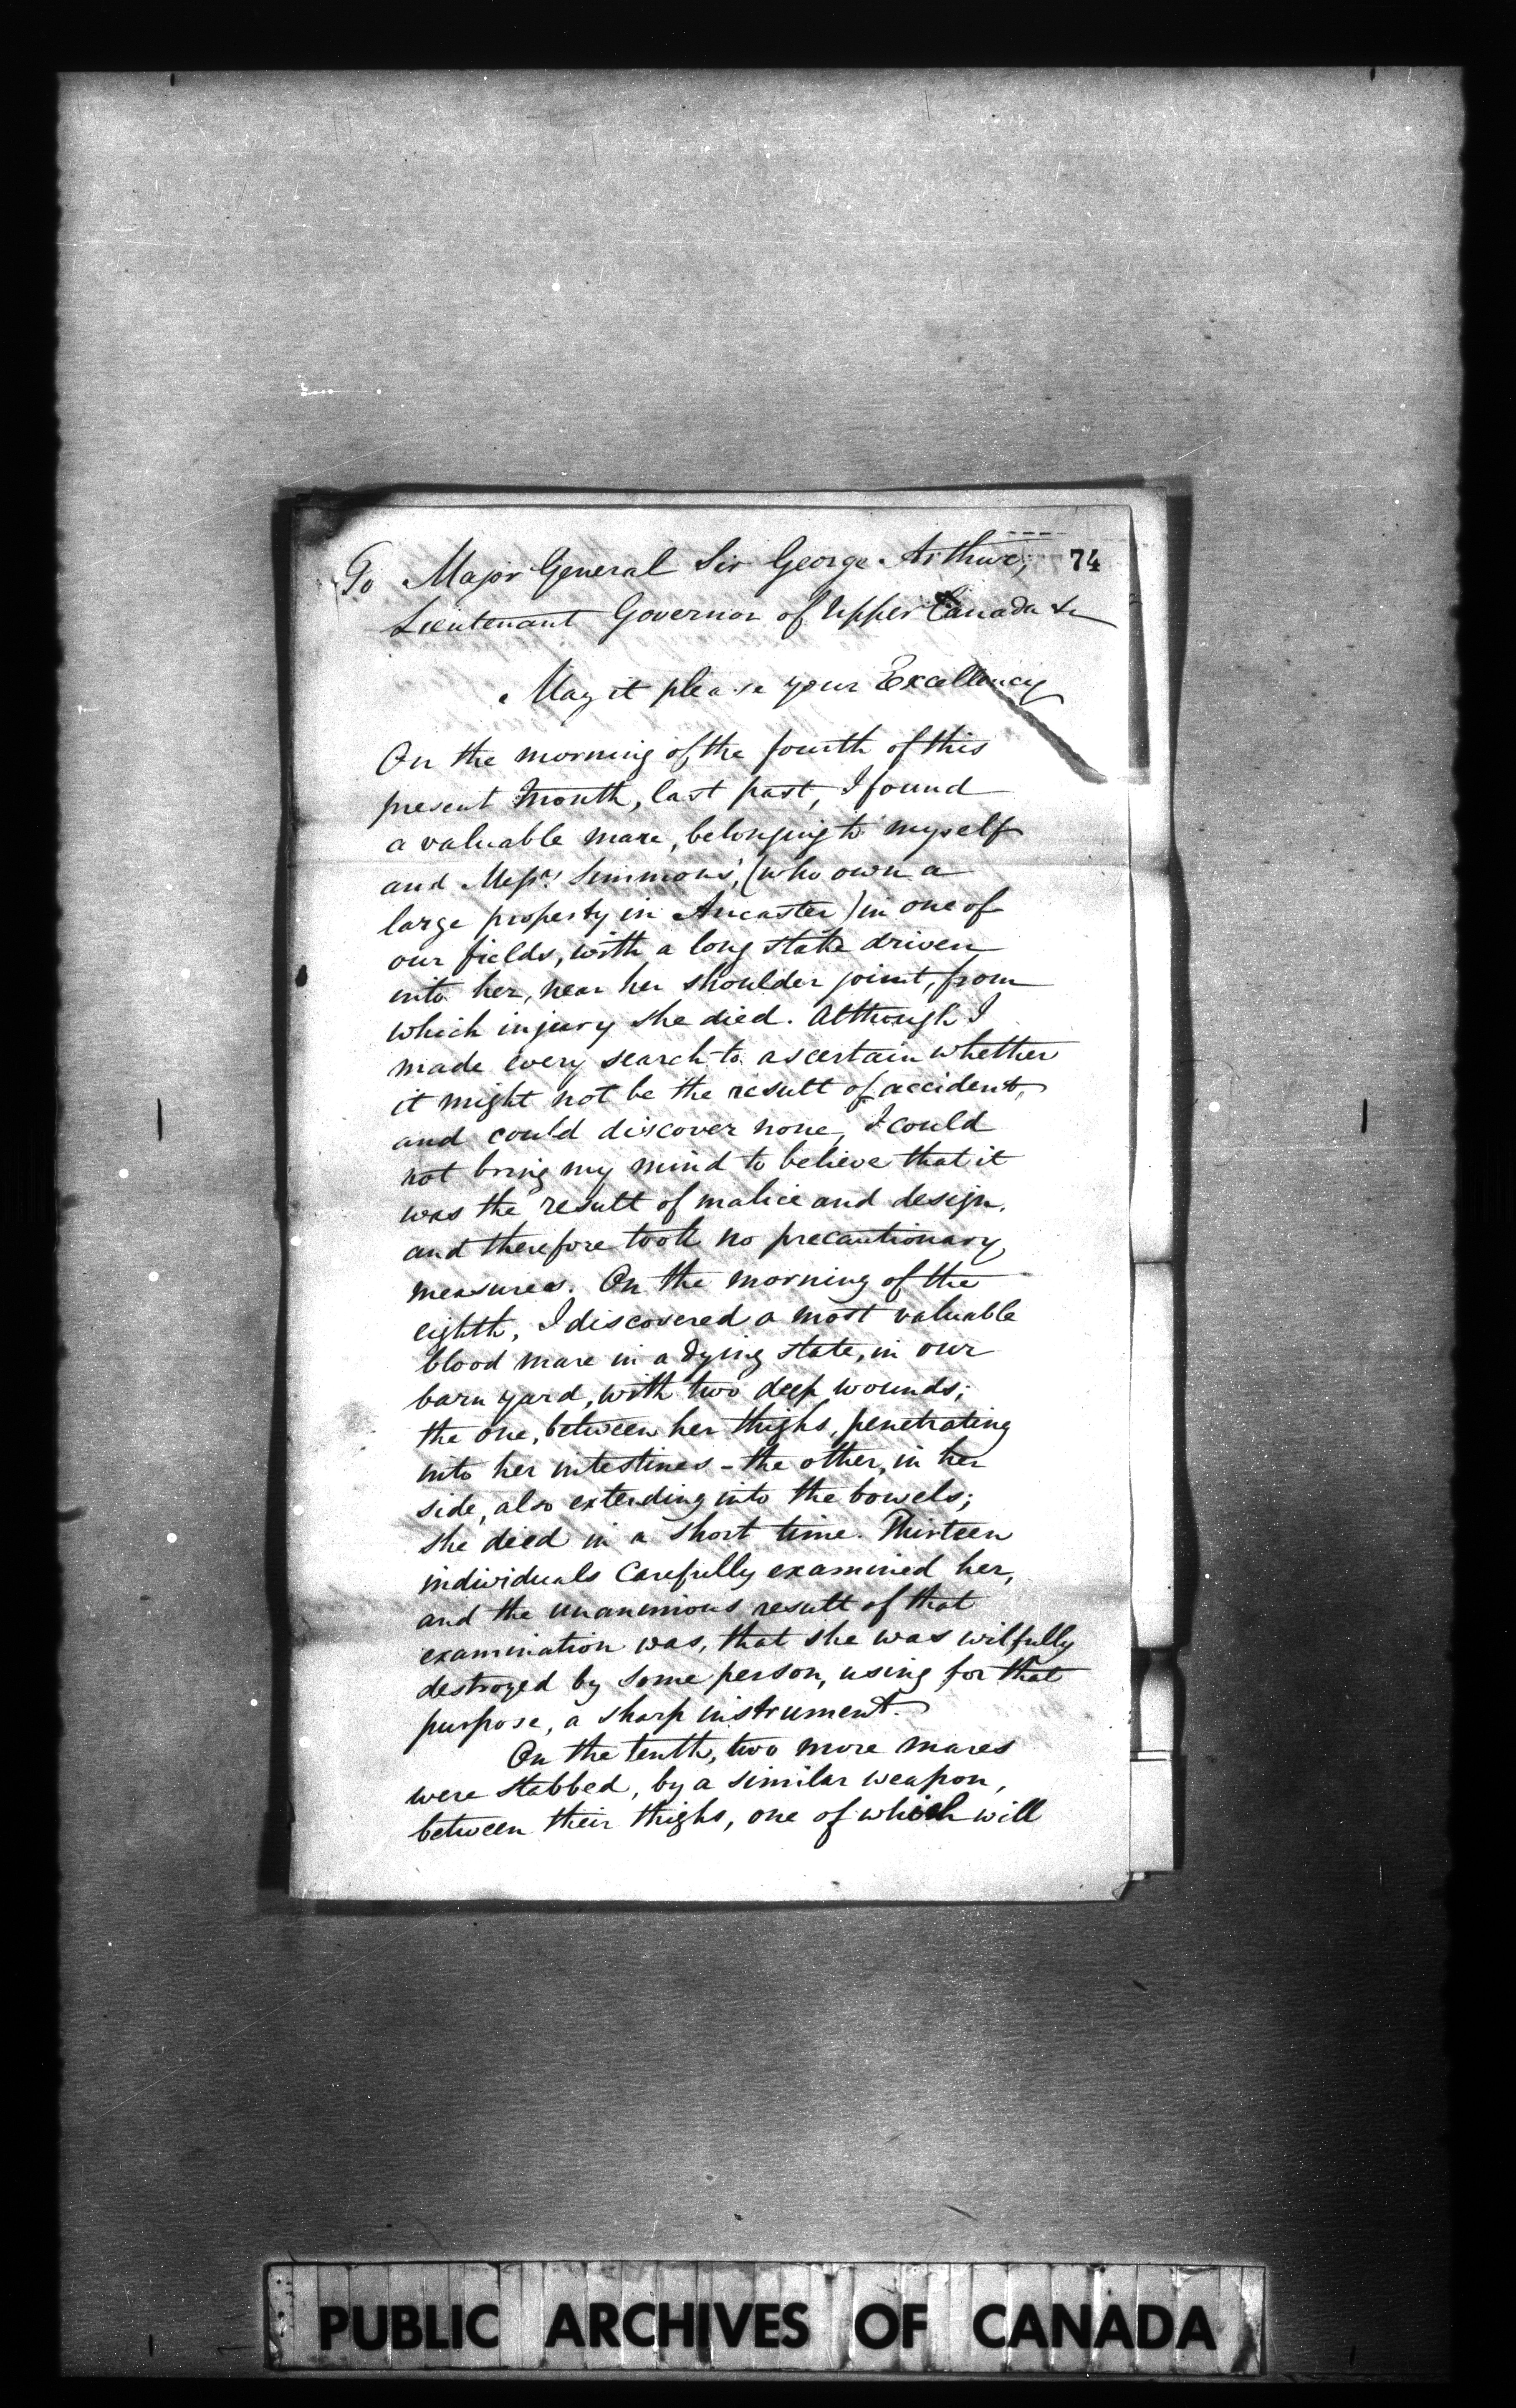 To Major General Sir George Arthur, 74
Lieutenant Governor of Upper Canada &c
May it please your Excellency
On the morning of the fourth of this
present month, last past, I found
a valuable mare, belonging to myself
and Messrs Simmons', (who own a
large property in Ancaster) in one of
our fields, with a long stake driven
into her, near her shoulder joint, from
which injury she died. Although I
made every search to ascertain whether
it might not be the result of accident,
and could discover none, I could
not bring my mind to believe that it
was the result of malice and design,
and therefore took no precautionary
measures. On the morning of the
eighth, I discovered a most valuable
blood mare in a dying state, in our
barn yard, with two deep wounds;
the one, between her thighs, penetrating
into her intestines - the other, in her
side, also extending into the bowels;
she died in a short time. Thirteen
individuals carefully examined her,
and the unanimous result of that
examination was, that she was wilfully
destroyed by some person, using for that
purpose, a sharp instrument.
On the tenth, two more mares
were stabbed, by a similar weapon,
between their thighs, one of which will
PUBLIC ARCHIVES OF CANADA